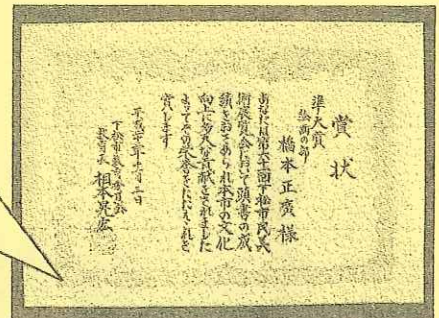 賞状
準大賞
絵画の部
橋本正廣様
あなたは第六十回下松市民美
術展覧会において頭書の成
績をおさめられ本市の文化
向上に多大な貢献をされました
よってその栄誉をたたえこれを
賞します
平成二十年十一月三日
下松市教育委員会
教育長 相本晃宏